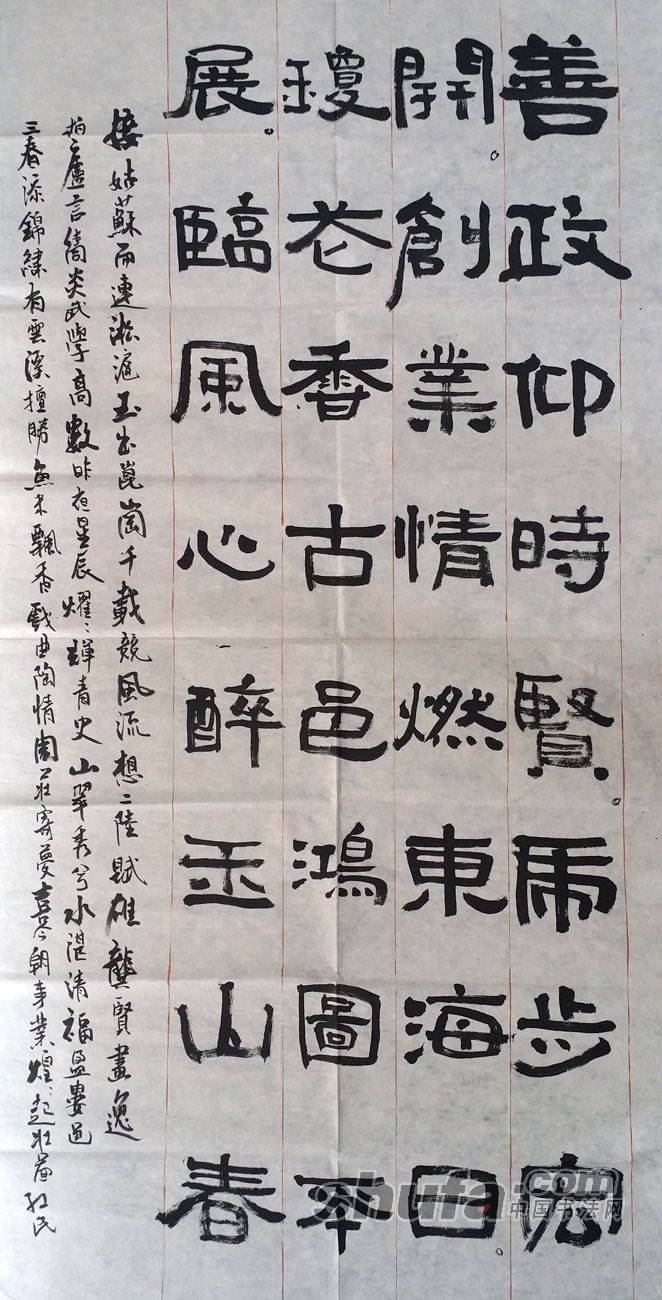 善政仰時賢。虎步宏
開。創業情燃東海日。
瓊花香古邑鴻圖丕
展。臨風心醉玉山春
接姑蘇而連淞滬玉出崑崗千載競風流想二陸賦雄龔賢畫逸
柏廬言儒炎武學高數昨夜星辰燿〻輝青史山翠秀兮水湛清福盈婁邑
三春添錦繡有雲溪擅勝魚米飄香戲曲陶情周莊寄夢喜今朝事業煌〻起壯
shufa.com
中国书法网